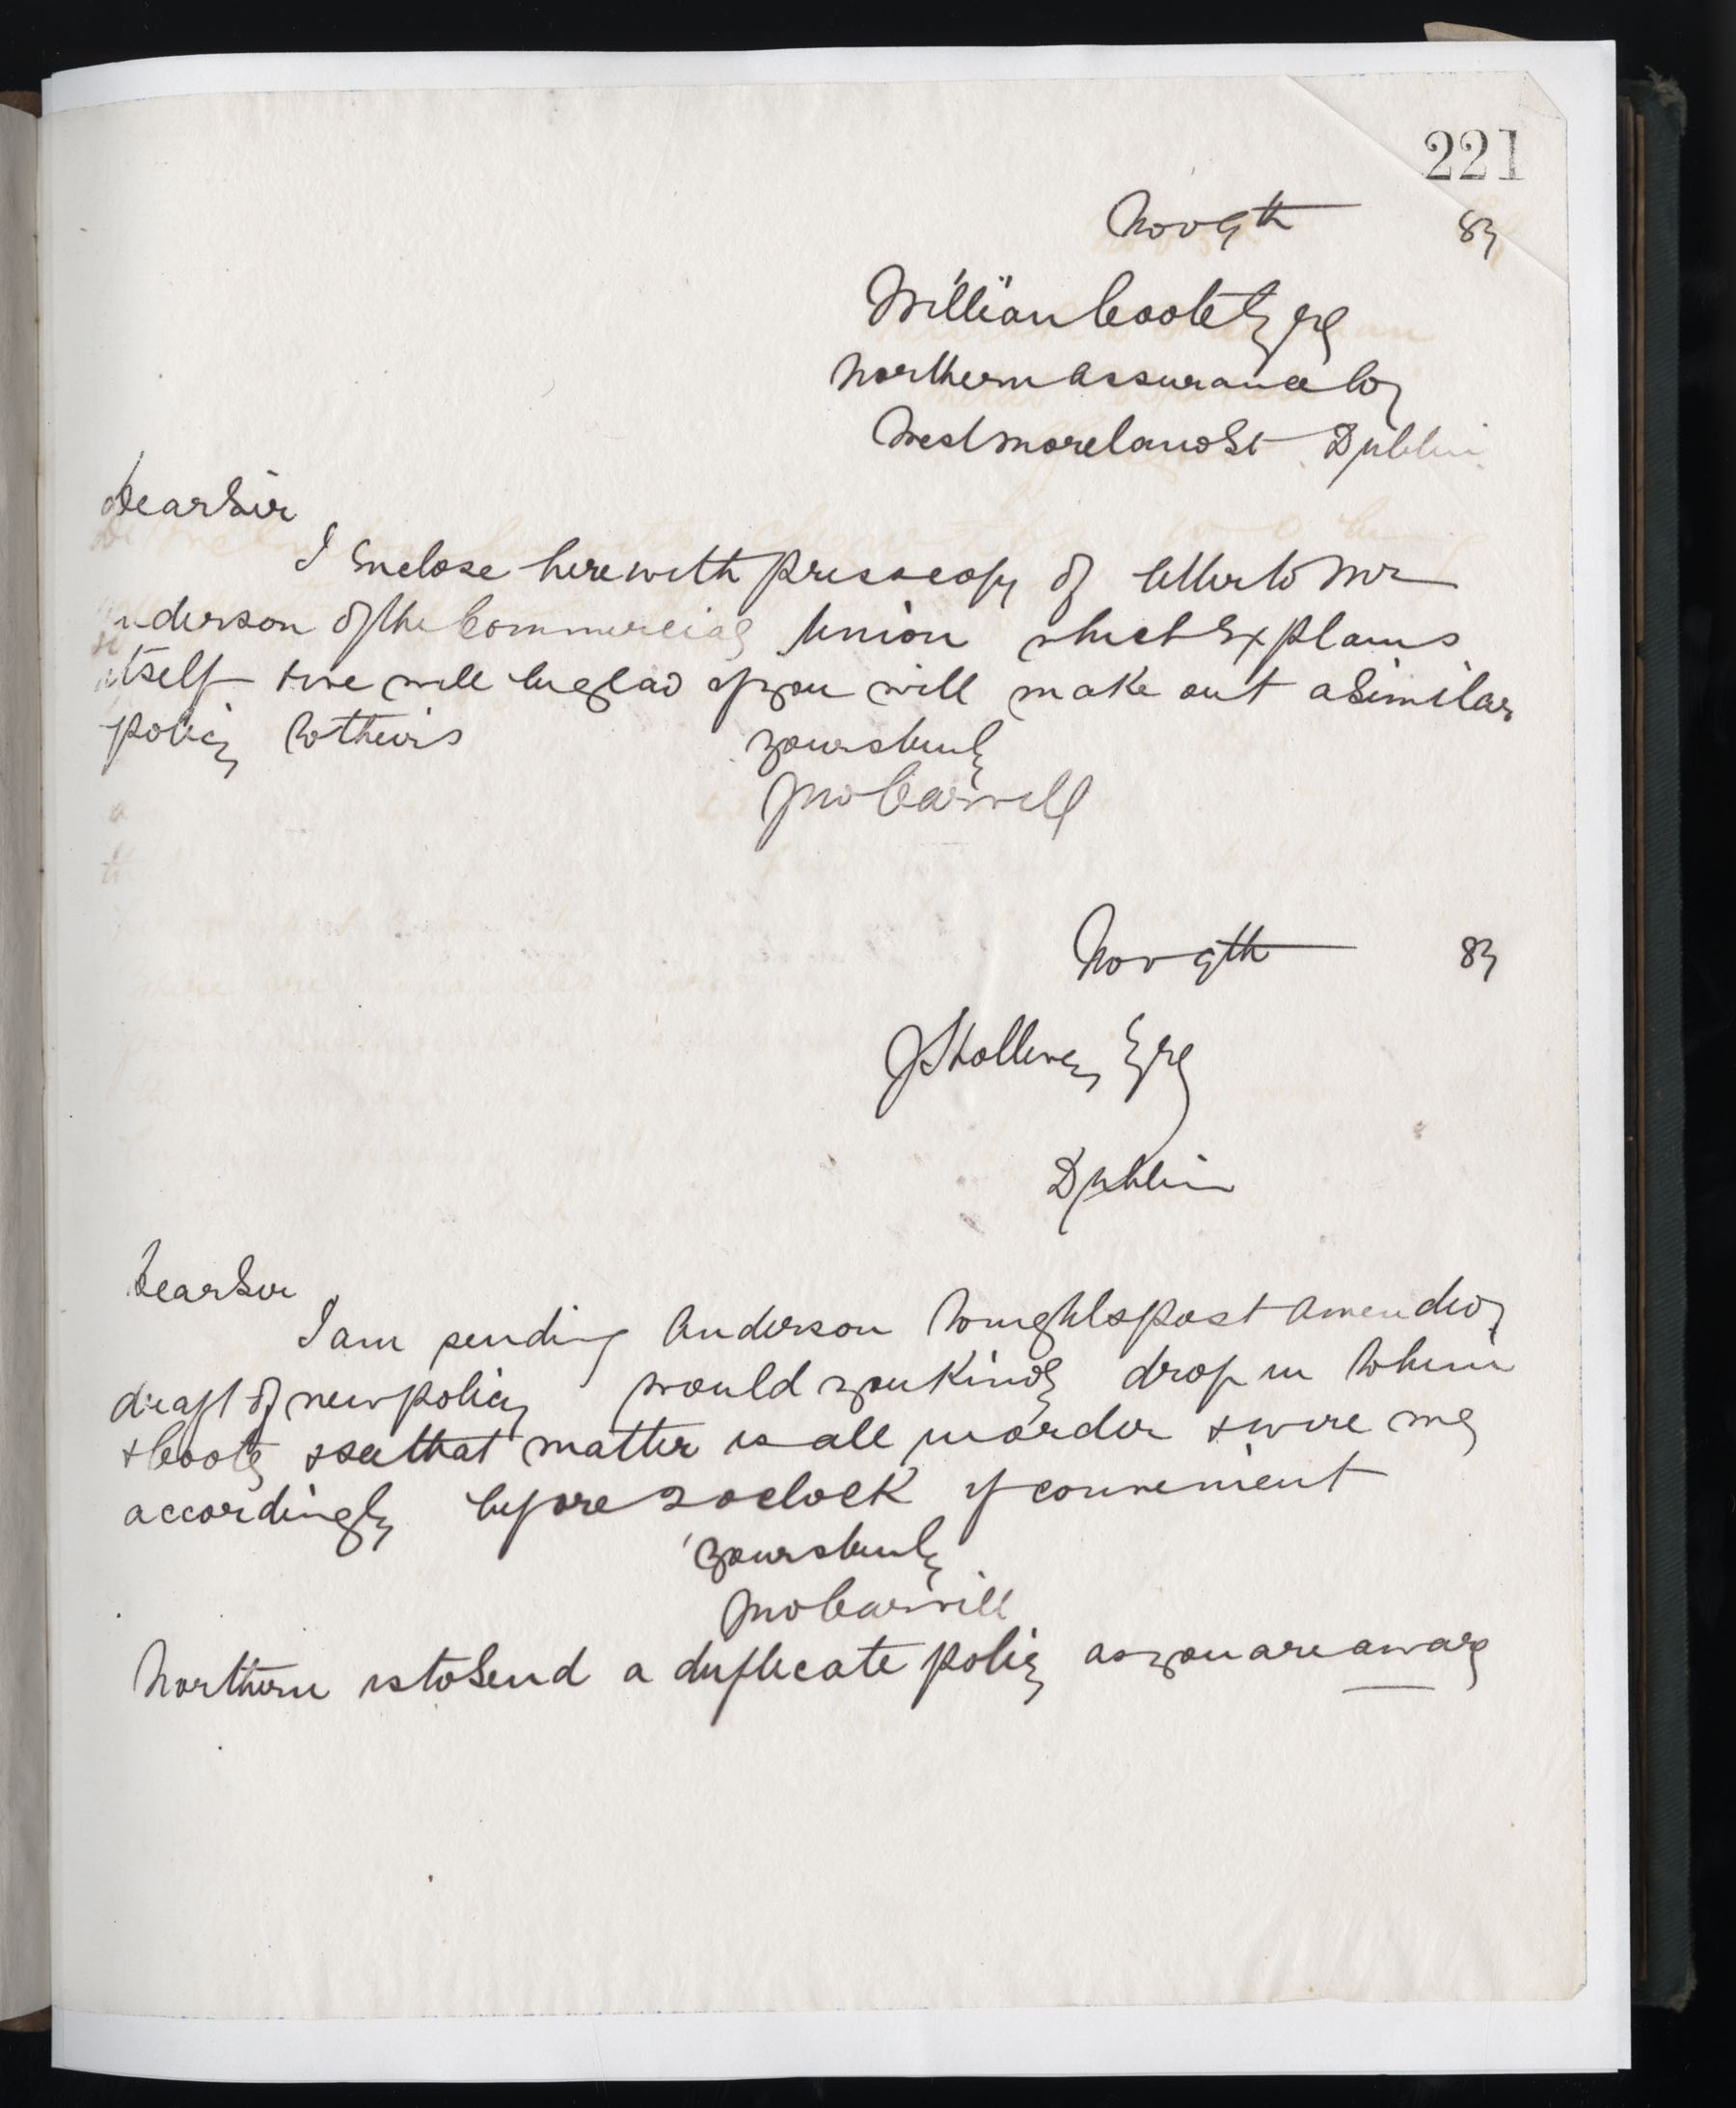 221
Nov 9th 83
William Coote Esq
Northern Assurance Coy
Westmoreland St Dublin
Dear Sir
I Enclose herewith press copy of letter to Mr
nderson of the Commercial Union which Explains
itself & we will be glad if you will make out a Similar
policy to theirs
yours truly
Jno Carvill
Nov 9th 83
Esq
Dublin
Dear Sir
I am sending Anderson tonights post amended
draft of new policy would you Kindly drop in to him
& Coote & see that matter is all in order & wire me
accordingly before 2 oclock if convenient
yours truly
Jno Carvill
Northern is to Send a duplicate policy as you are aware